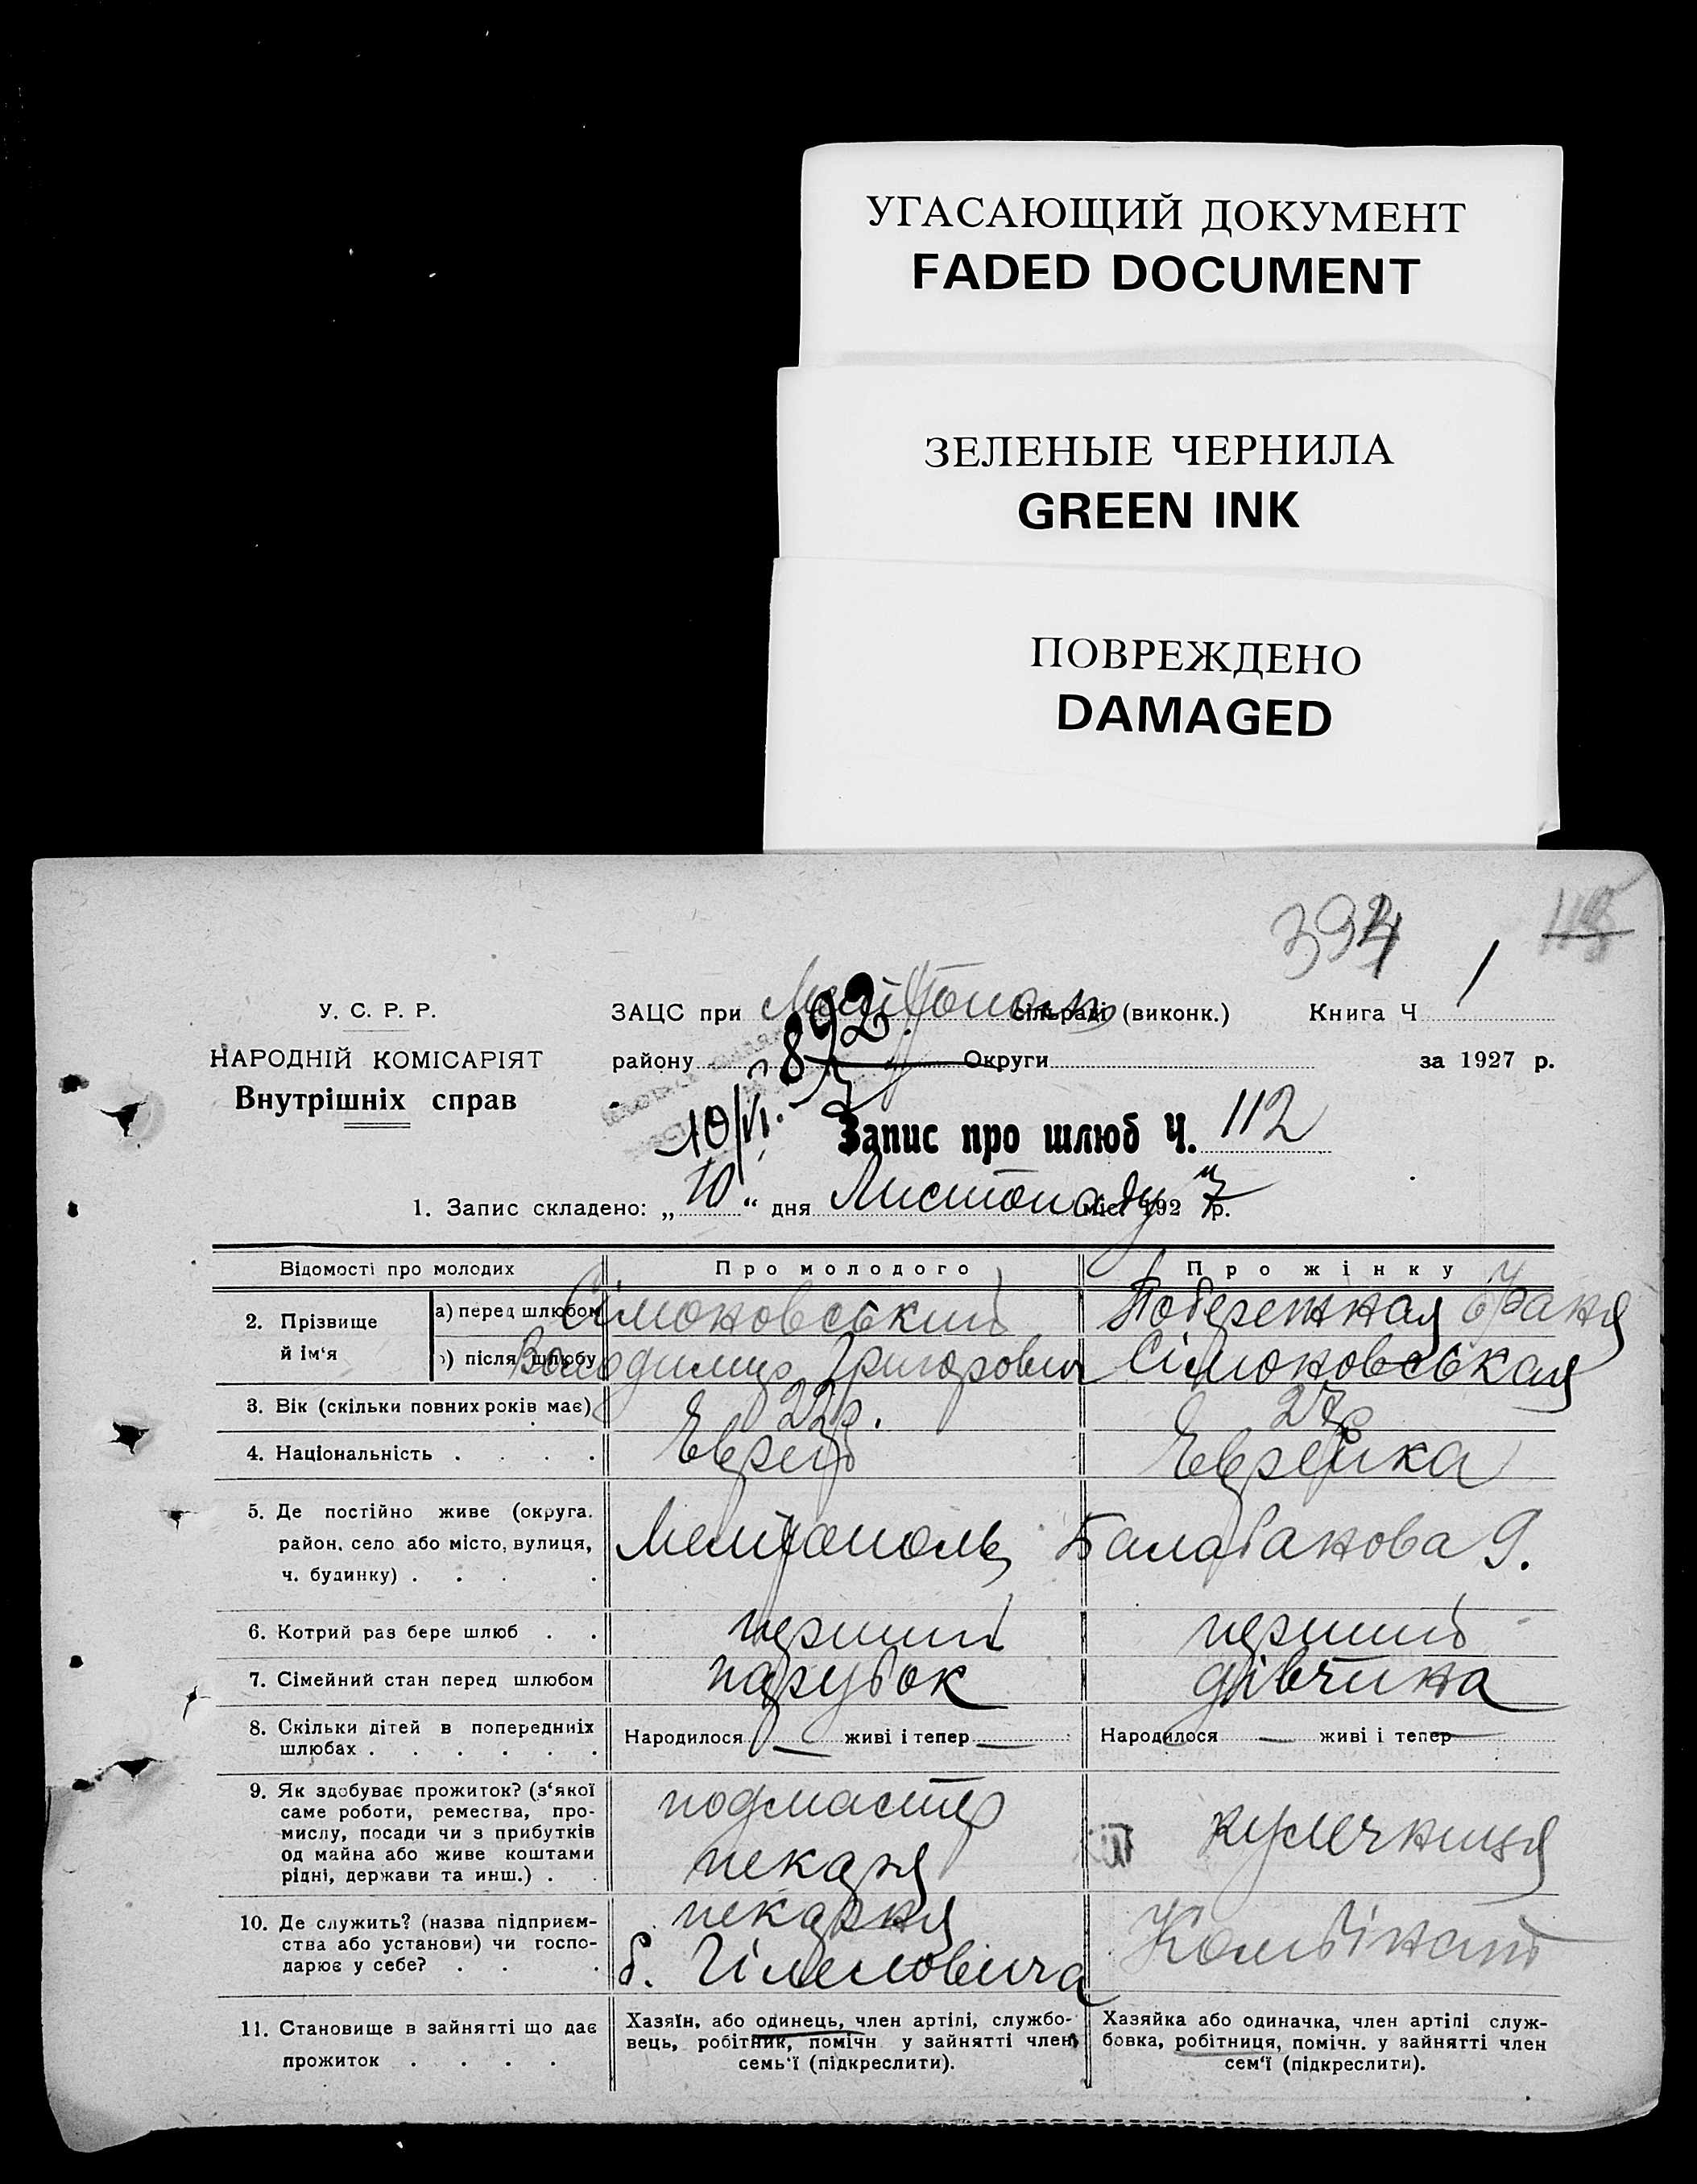 УГАСАЮЩИЙ ДОКУМЕНТ
FADED DOCUMENT
ЗЕЛЕНЫЕ ЧЕРНИЛА
GREEN INK
ПОВРЕЖДЕНО
DAMAGED
У. С. Р. Р.
НАРОДНІЙ КОМІСАРІЯТ
Внутрішніх справ
ЗАЦС при сільраді (виконк.) Книга Ч 1
892
району Округи за 1927 р.
10/XI.
Запис про шлюб Ч. 112
1. Запис складено: „10“ дня Листопаду міс. 1927 р.
Відомості про молодих Про молодого Про жінку
2. Прізвище й ім‘я
а) перед шлюбом Сімоновський Побережная Фаня
б) після шлюбу Володимир Григорович Сімоновськая
3. Вік (скільки повних років має) 22 р. 27 р
4. Національність . . . . Еврей Еврейка
5. Де постійно живе (округа.
район, село або місто, вулиця,
ч. будинку) . . . .
Мелітополь Балабанова 9.
6. Котрий раз бере шлюб . . перший перший
7. Сімейний стан перед шлюбом парубок дівчина
8. Скільки дітей в попередніх
шлюбах . . . . . .
Народилося — живі і тепер — Народилося — живі і тепер —
9. Як здобуває прожиток? (з‘якої
саме роботи, ремества, про-
мислу, посади чи з прибутків
од майна або живе коштами
рідні, держави та инш.) . .
подмастер
пекаря
10. Де служить? (назва підприєм-
ства або установи) чи госпо-
дарює у себе? . . .
пекарня
б.
Комбінат
11. Становище в зайнятті що дає
прожиток . . . .
Хазяїн, або одинець, член артілі, службо-
вець, робітник, помічн. у зайнятті член
семь‘ї (підкреслити).
Хазяйка або одиначка, член артілі служ-
бовка, робітниця, помічн. у зайнятті член
сем‘ї (підкреслити).